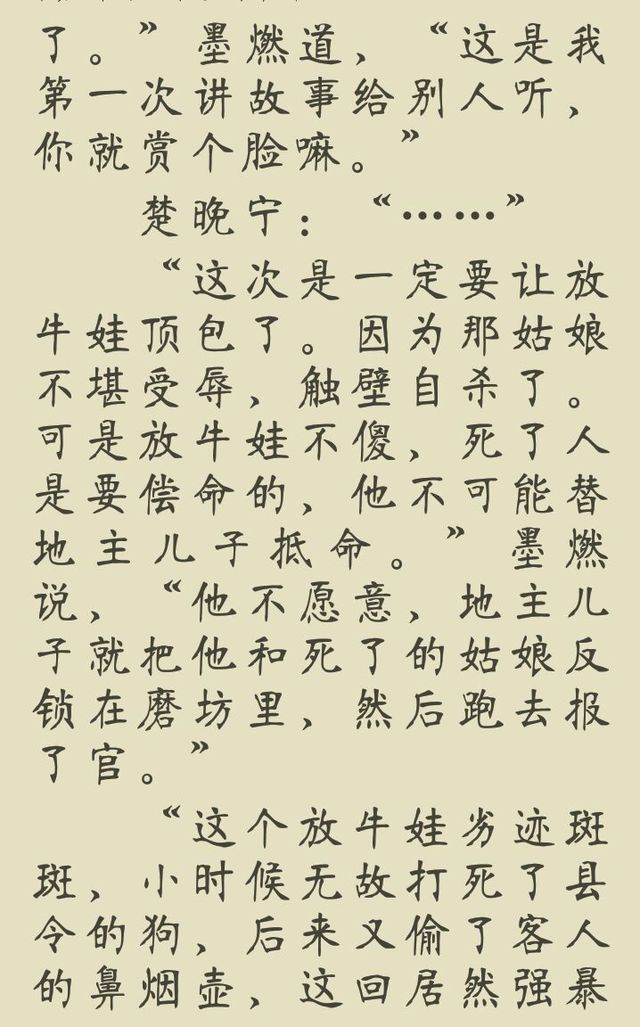 了。”墨燃道，“这是我
第一次讲故事给别人听，
你就赏个脸嘛。”
楚晚宁：“……”
“这次是一定要让放
牛娃顶包了。因为那姑娘
不堪受辱，触壁自杀了。
可是放牛娃不傻，死了人
是要偿命的，他不可能替
地主儿子抵命。”墨燃
说，“他不愿意，地主儿
子就把他和死了的姑娘反
锁在磨坊里，然后跑去报
了官。”
“这个放牛娃劣迹斑
斑，小时候无故打死了县
令的狗，后来又偷了客人
的鼻烟壶，这回居然强暴